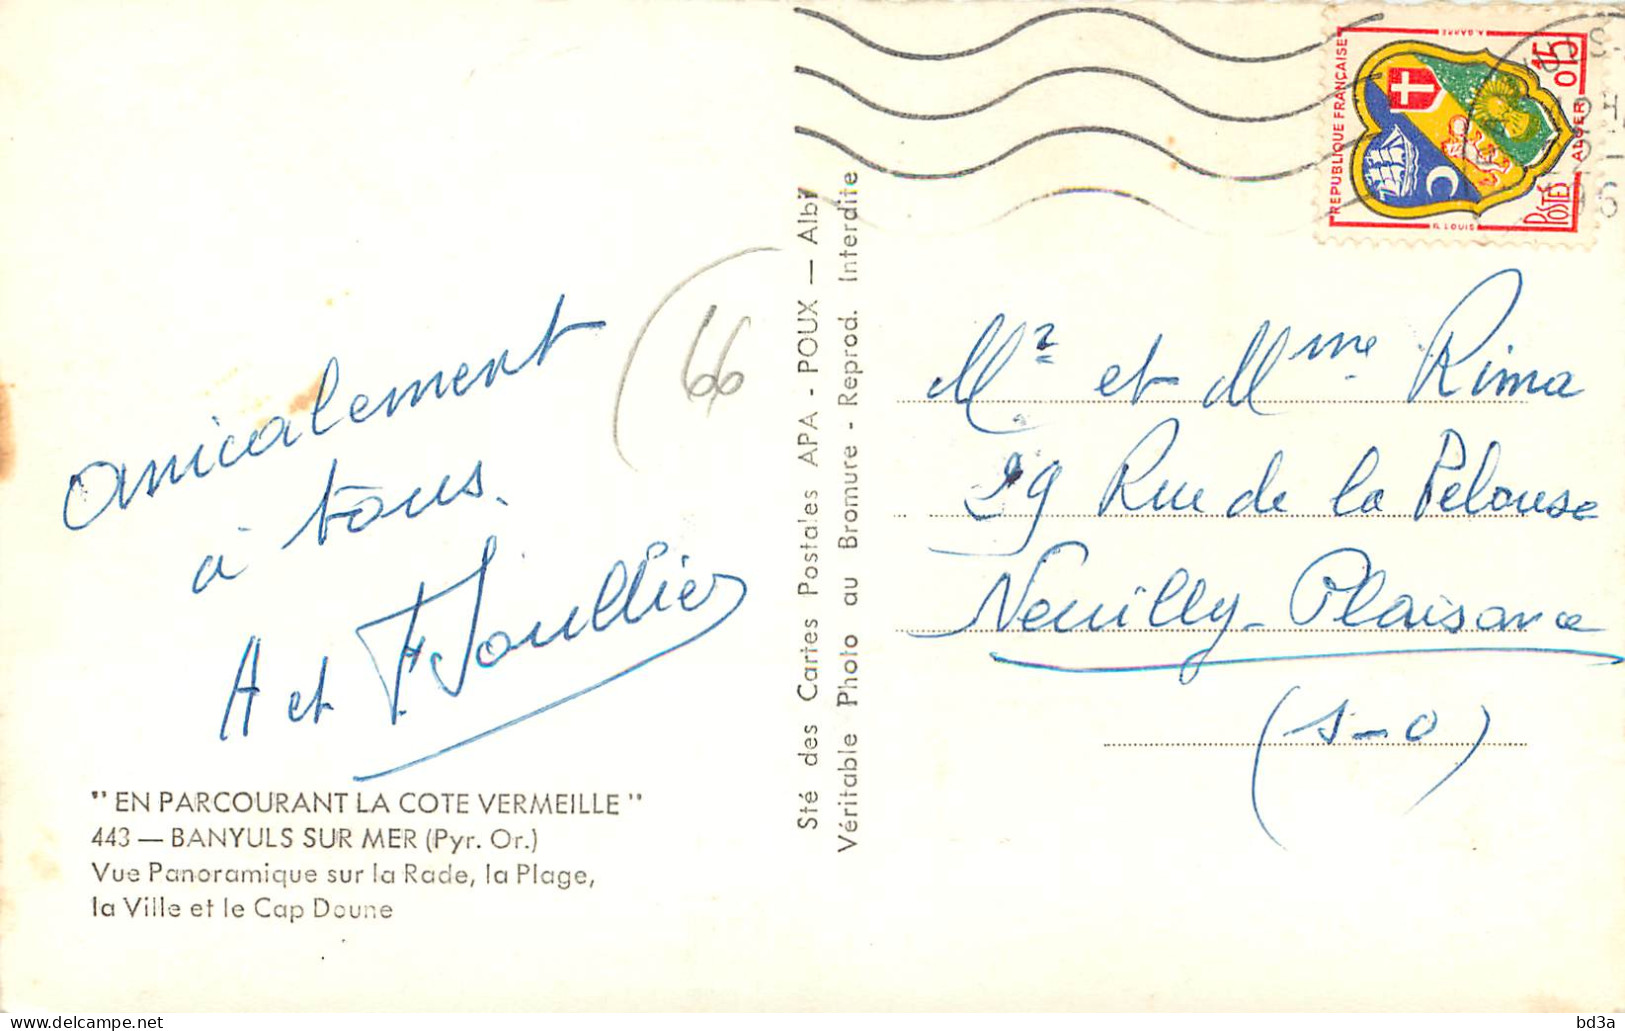 amicalement
à tous.
A et F Joullier
66
" EN PARCOURANT LA COTE VERMEILLE "
443 — BANYULS SUR MER (Pyr. Or.)
Vue Panoramique sur la Rade, la Plage,
la Ville et le Cap Doune
Sté des Cartes Postales APA - POUX — Albi
Véritable Photo au Bromure - Reprod. Interdite
REPUBLIQUE FRANÇAISE
0,15
ALGER
POSTES
Mr et Mme Rima
29 Rue de la Pelouse
Neuilly-Plaisance
(S-O)
bd3a